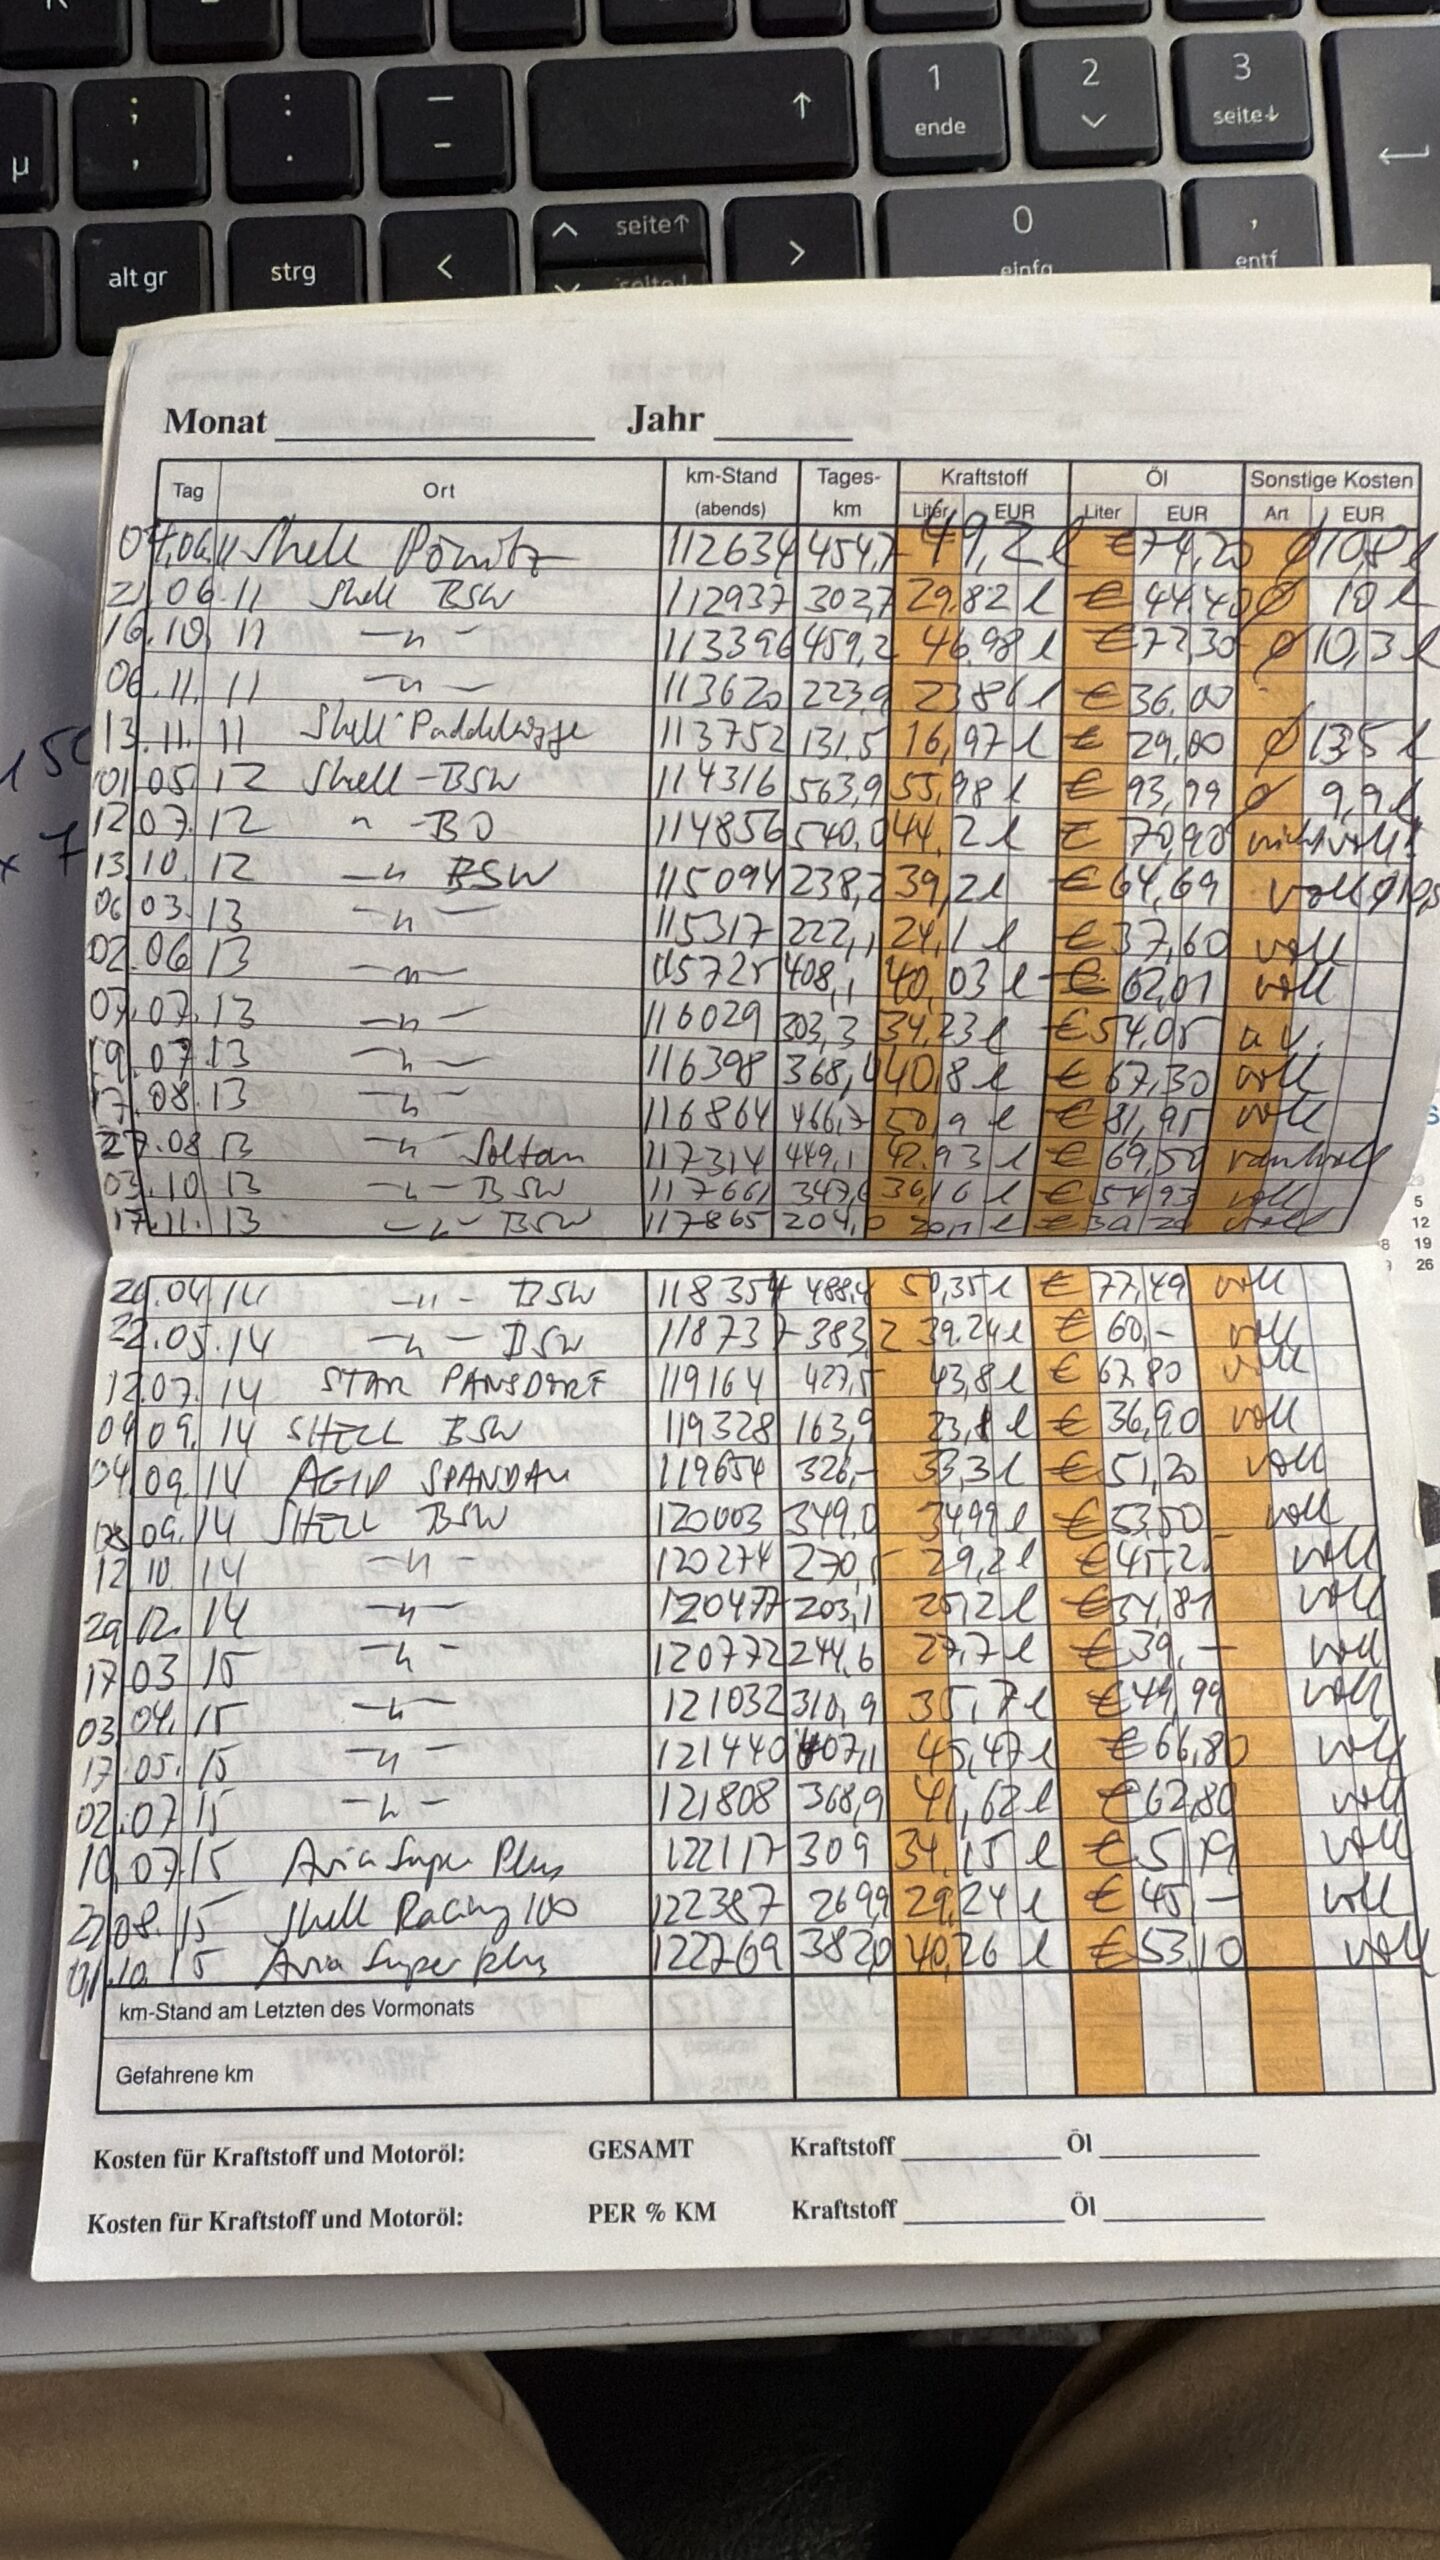 µ ; , : . _ - ↑ 1 ende 2 3 seite↓
alt gr strg < seite↑ > 0 einfg , entf
Monat Jahr
Tag Ort km-Stand (abends) Tages-km Kraftstoff Öl Sonstige Kosten
Liter EUR Liter EUR Art EUR
Shell Pönitz 112634 454,7 49,2 l € 74,20 ∅ 10,8 l
21.06.11 Shell BSW 112937 303,7 29,82 l € 44,40 ∅ 10 l
16.10.11 —"— 113396 459,2 46,98 l € 72,30 ∅ 10,3 l
06.11.11 —"— 113620 223,9 23,86 l € 36,00
13.11.11 Shell 113752 131,5 16,97 l € 29,00 ∅ 13,5 l
01.05.12 Shell-BSW 114316 563,9 55,98 l € 93,99 ∅ 9,9 l
12.07.12 " -BO 114856 540,0 44,2 l € 70,90 nicht voll!
13.10.12 —"— BSW 115094 238,2 39,2 l € 64,69 voll
06.03.13 —"— 115317 222,1 24,1 l € 37,60 voll
02.06.13 —"— 115725 408,1 40,03 l € 62,01 voll
07.07.13 —"— 116029 303,3 34,23 l € 54,05
19.07.13 —"— 116398 368,4 40,8 l € 67,30 voll
17.08.13 —"— 116864 466,7 50,9 l € 81,95 voll
27.08.13 —"— Soltau 117314 449,1 42,93 l € 69,50
03.10.13 —"— BSW 117661 347,6 36,16 l € 54,93 voll
17.11.13 —"— BSW 117865 204,0 € voll
.04.14 —"— BSW 118354 488,4 50,35 l € 77,49 voll
22.05.14 —"— BSW 118737 383,2 39.24 l € 60,- voll
12.07.14 STAR PANSDORF 119164 427,5 43,8 l € 67,80 voll
04.09.14 SHELL BSW 119328 163,9 23,8 l € 36,90 voll
04.09.14 AGIP SPANDAU 119654 326,- 33,3 l € 51,20 voll
08.09.14 SHELL BSW 120003 349,0 34,99 l € 53,50 voll
12.10.14 —"— 120274 270,5 29,2 l € voll
29.12.14 —"— 120477 203,1 25,2 l € 34,81 voll
17.03.15 —"— 120772 244,6 27,7 l € 39,— voll
03.04.15 —"— 121032 310,9 35,7 l € 49,99 voll
17.05.15 —"— 121440 407,1 45,47 l € 66,80 voll
02.07.15 —"— 121808 368,9 41,62 l € 62,80 voll
10.07.15 Avia Super Plus 122117 309 34,15 l € voll
22.08.15 Shell Racing 100 122387 269,9 29,24 l € 45,— voll
01.10.15 Avia Super plus 122769 382,0 40,26 l € 53,10 voll
km-Stand am Letzten des Vormonats
Gefahrene km
Kosten für Kraftstoff und Motoröl: GESAMT Kraftstoff Öl
Kosten für Kraftstoff und Motoröl: PER % KM Kraftstoff Öl
5
12
19
26